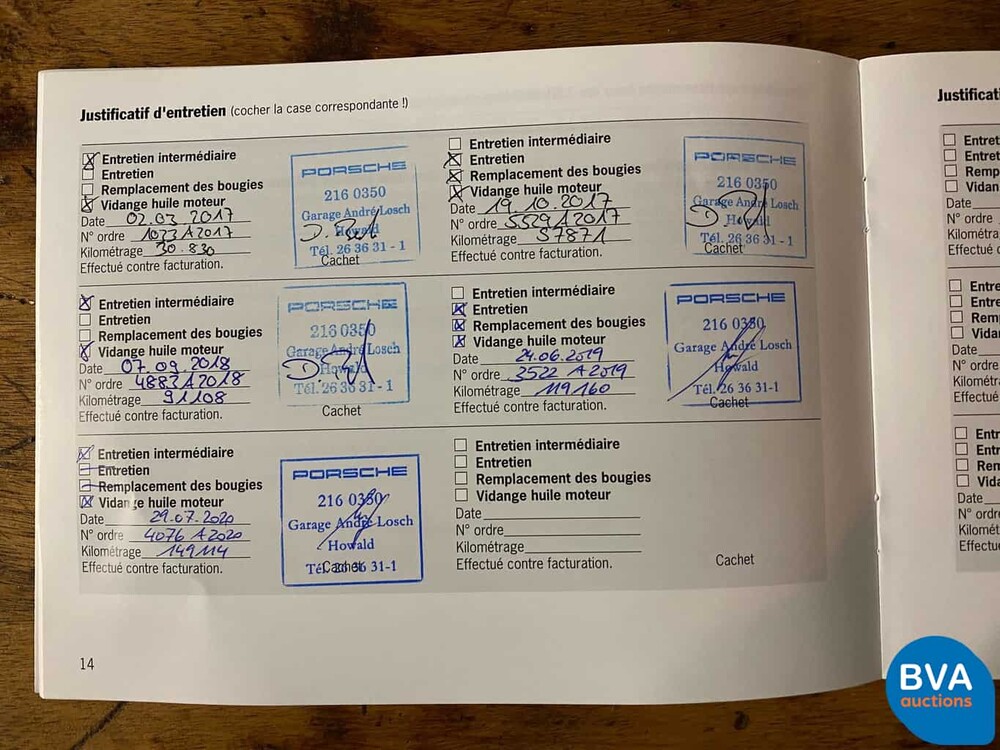 Justificatif d'entretien (cocher la case correspondante !)
Entretien intermédiaire
Entretien
Remplacement des bougies
Vidange huile moteur
Date 02.03 2017
N° ordre 1023A2017
Kilométrage 30.830
Effectué contre facturation.
PORSCHE
216 0350
Garage André Losch
Howald
Tél. 26 36 31 - 1
Cachet
Entretien intermédiaire
Entretien
Remplacement des bougies
Vidange huile moteur
Date 19 10.2017
N° ordre 5529A2017
Kilométrage 57871
Effectué contre facturation.
PORSCHE
216 0350
Garage André Losch
Howald
Tél. 26 36 31 - 1
Cachet
Entretien intermédiaire
Entretien
Remplacement des bougies
Vidange huile moteur
Date 07.09.2018
N° ordre 4883A2018
Kilométrage 91108
Effectué contre facturation.
PORSCHE
216 0350
Garage André Losch
Howald
Tél. 26 36 31 - 1
Cachet
Entretien intermédiaire
Entretien
Remplacement des bougies
Vidange huile moteur
Date 24.06.2019
N° ordre 3522 A2019
Kilométrage 119160
Effectué contre facturation.
PORSCHE
216 0350
Garage André Losch
Howald
Tél. 26 36 31-1
Cachet
Entretien intermédiaire
Entretien
Remplacement des bougies
Vidange huile moteur
Date 29.07.2020
N° ordre 4076 A2020
Kilométrage 149114
Effectué contre facturation.
PORSCHE
216 0350
Garage André Losch
Howald
Tél. 26 36 31-1
Cachet
Entretien intermédiaire
Entretien
Remplacement des bougies
Vidange huile moteur
Date
N° ordre
Kilométrage
Effectué contre facturation.
Cachet
14
Justificati
Entret
Entret
Rempl
Vidan
Date
N° ordre
Kilométra
Effectué
Entre
Entre
Rem
Vida
Date
N° ordr
Kilométr
Effectué
Entr
Entr
Ren
Vida
Date
N° ord
Kilomét
Effectu
BVA
auctions